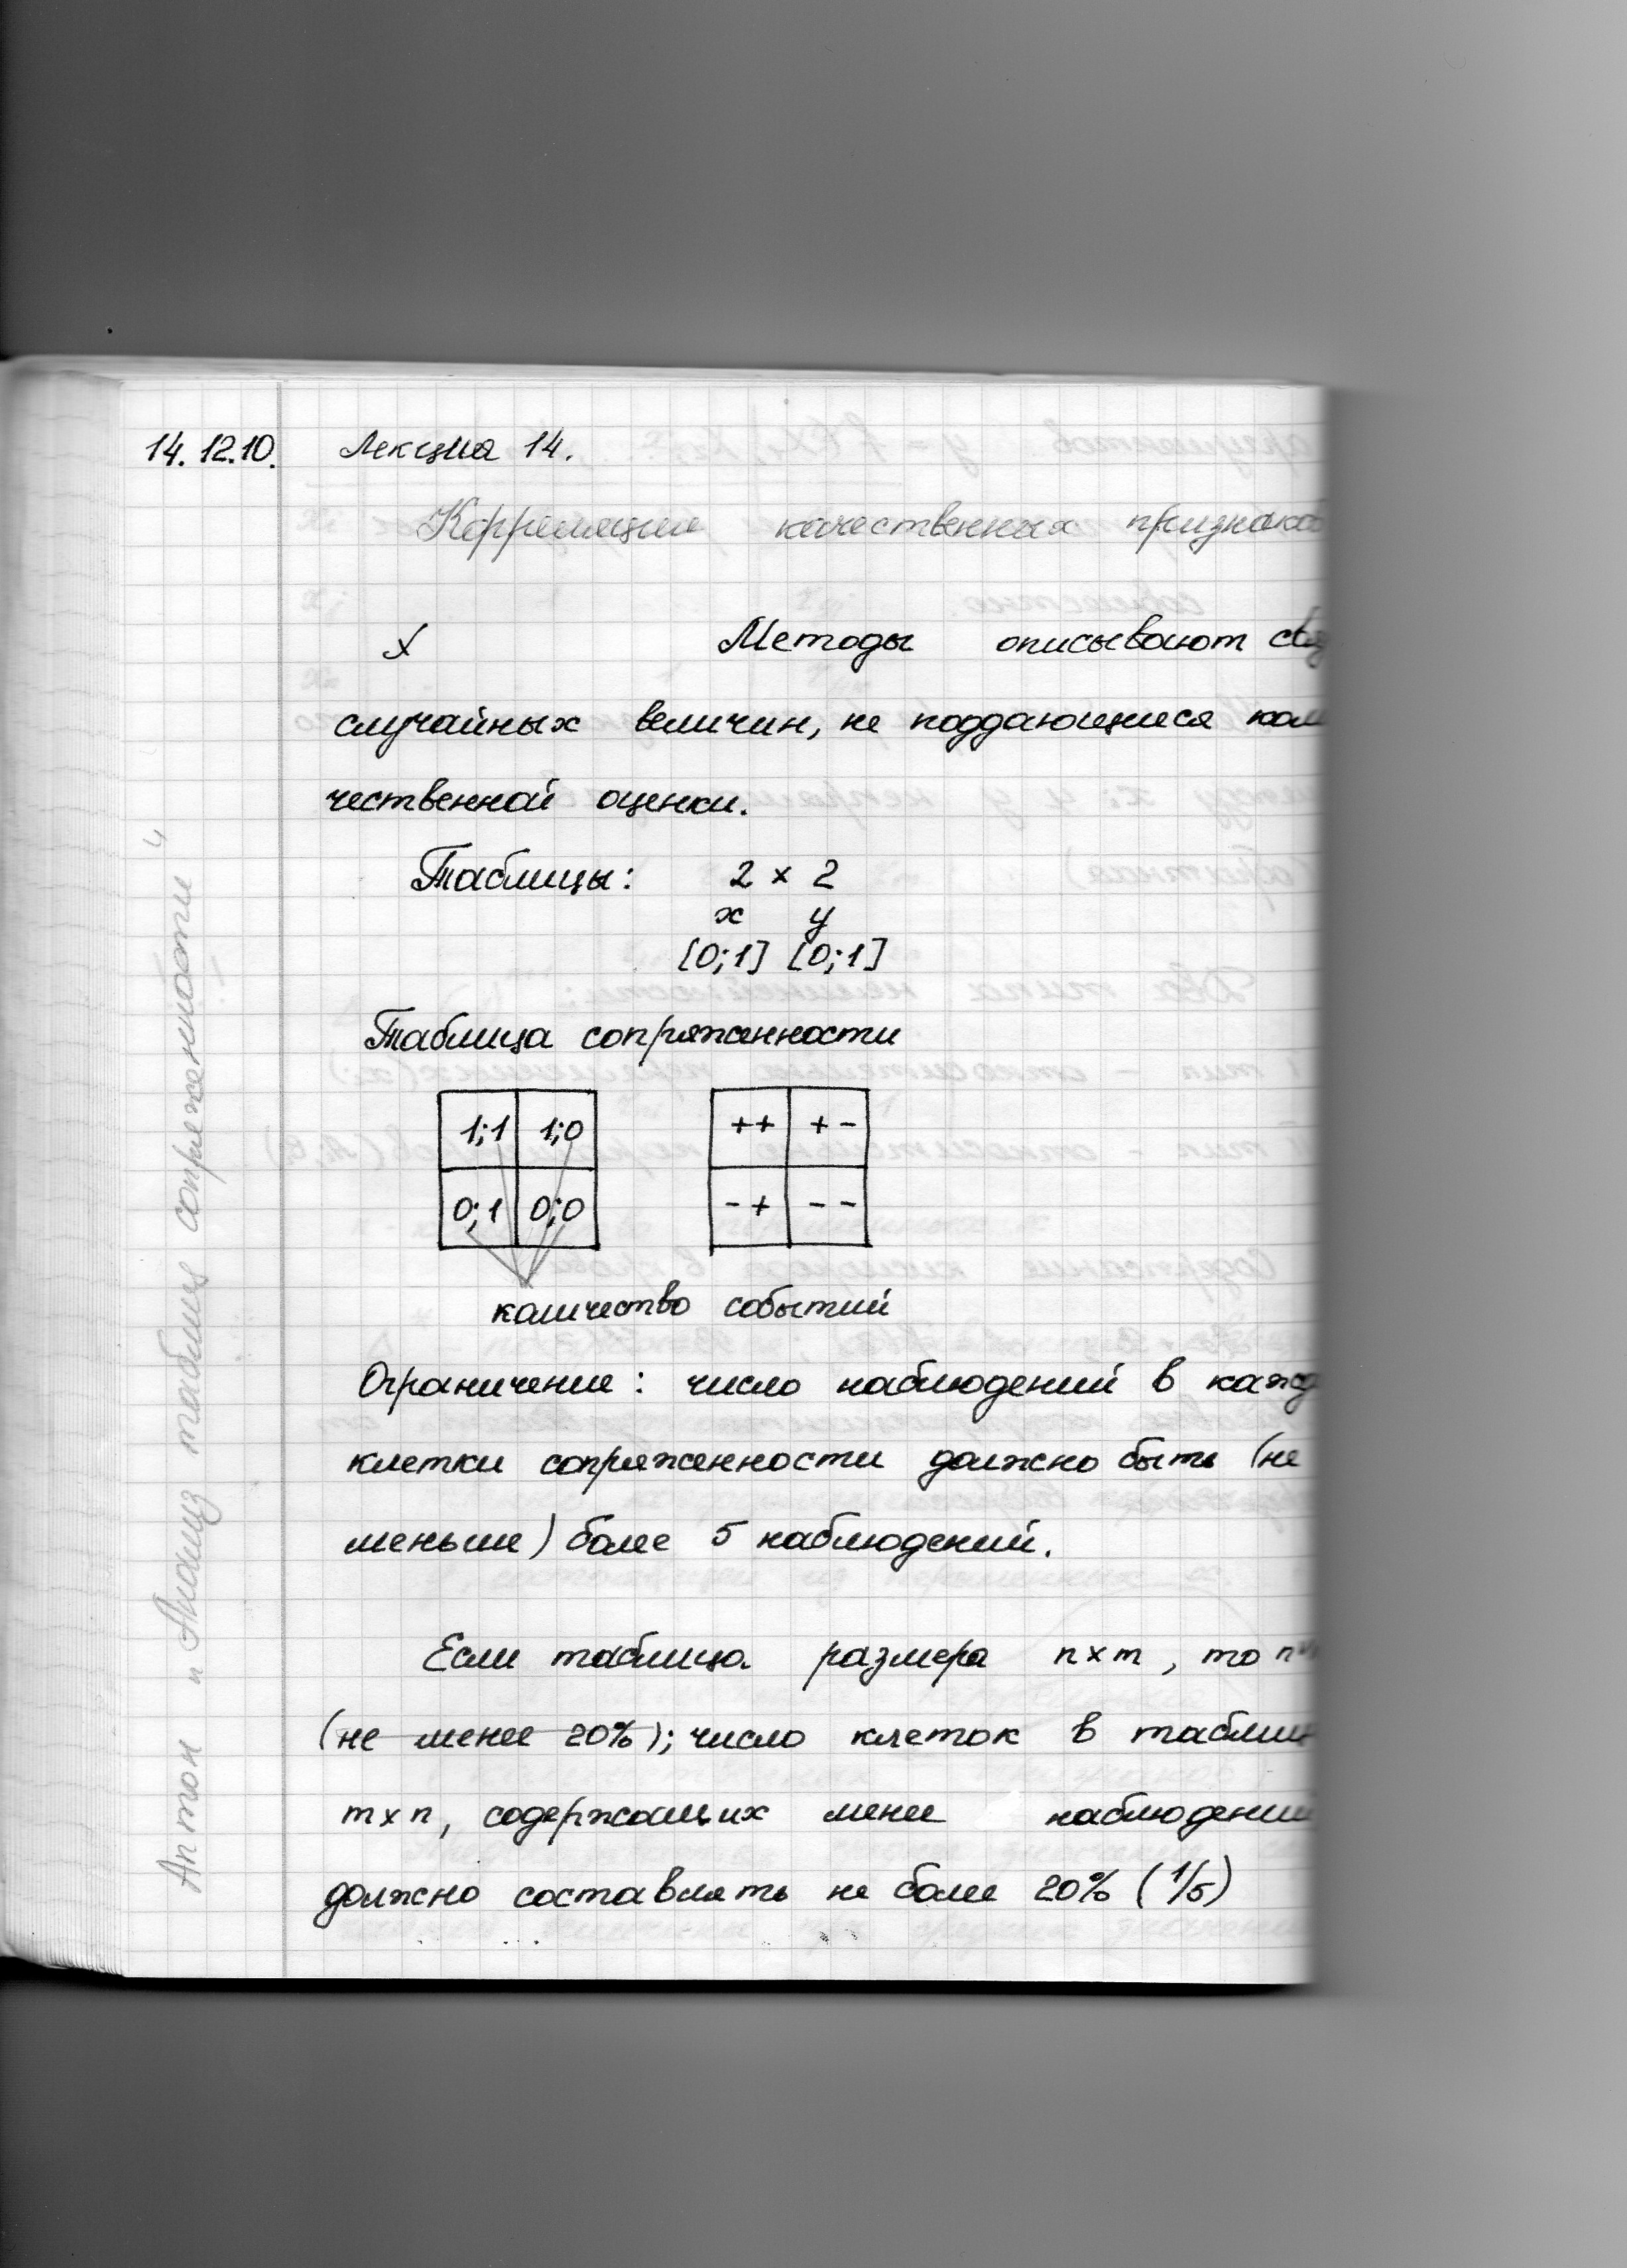 14.12.10. Лекция 14.
Корреляции качественных признаков
x Методы описывают
случайных величин, не поддающиеся коли
чественной оценки.
Таблицы: 2 x 2
x y
[0;1] [0;1]
Таблица сопряженности
1;1 1;0 ++ +-
0;1 0;0 -+ --
количество событий
Ограничение: число наблюдений в кажд
клетки сопряженности должно быть (не
меньше) более 5 наблюдений.
Если таблица размера n x m, то
(не менее 20%); число клеток в таблиц
m x n, содержащих менее наблюдений
должно составлять не более 20% (1/5)
Антон и Анализ таблиц сопряженности 4